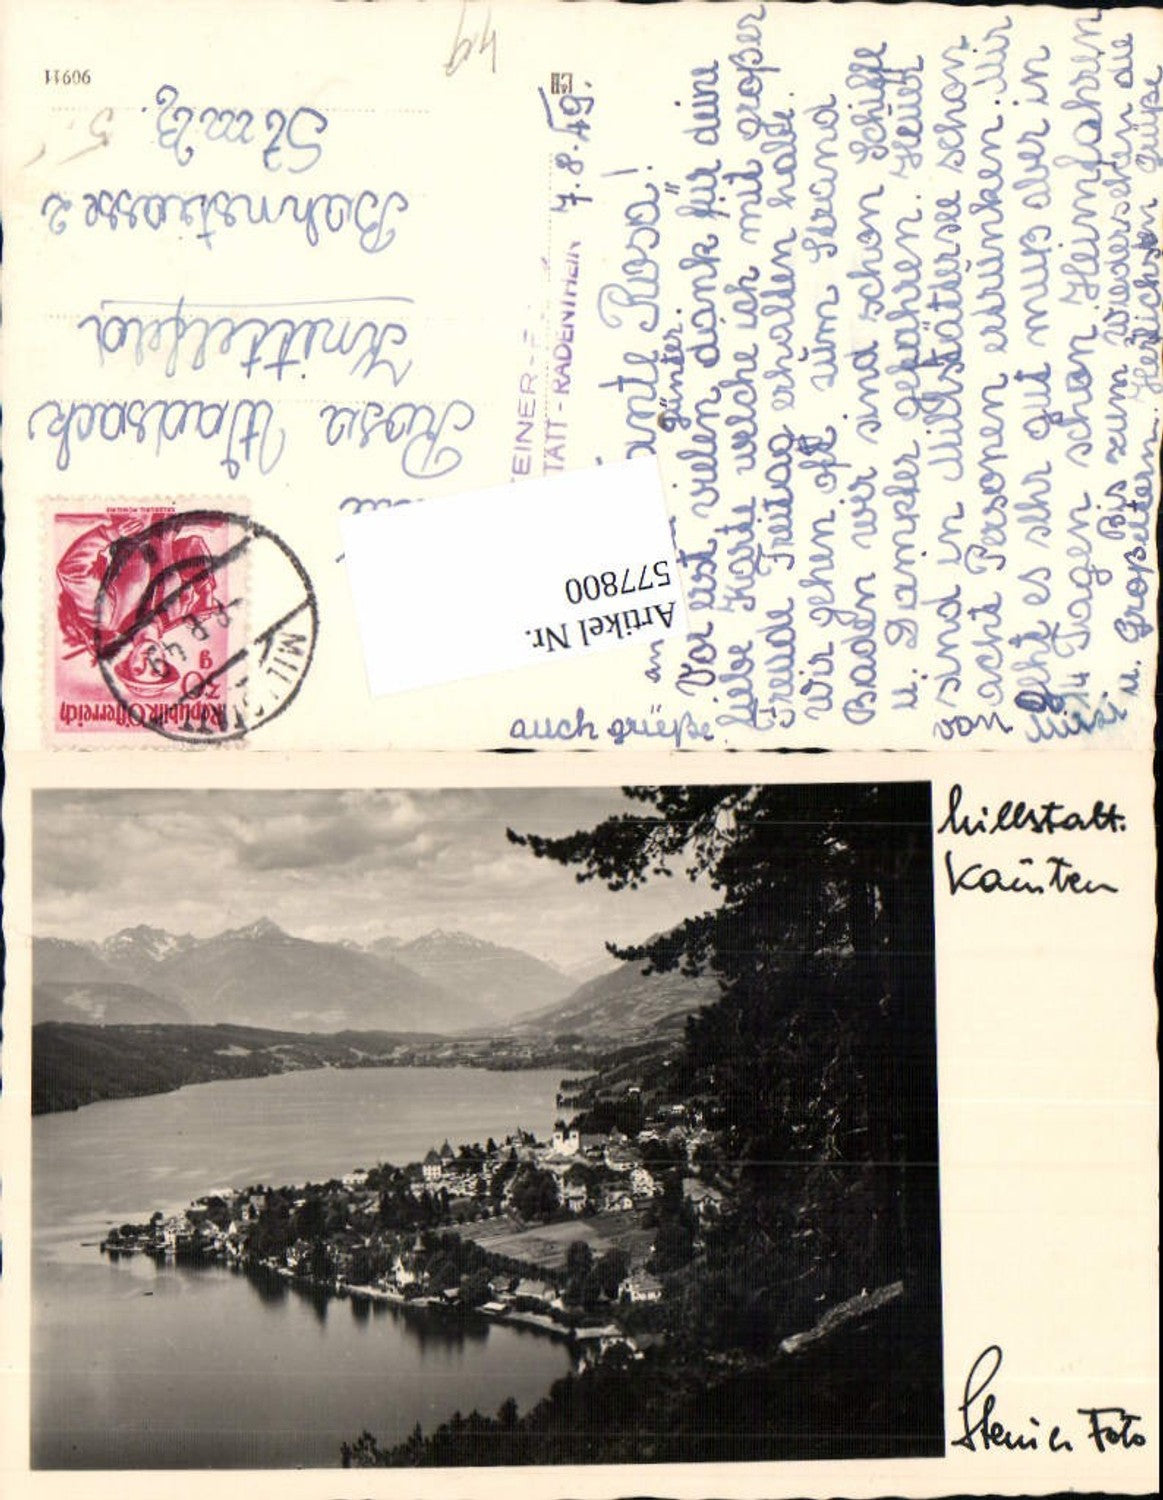 7.8.49.
ante Rosa!
Vor erst vielen dank für deine
liebe Karte welche ich mit großer
Freude Freitag erhalten habe.
Wir gehen oft zum Strand
Baden wir sind schon Schiffe
u. Dampfer gefahren. Heuer
sind in Millstättersee schon
acht Personen ertrunken. Mir
geht es sehr gut muß aber in
14 Tagen schon Heimfahren
Bis zum Wiedersehen die
Herzlichsten grüße
von Missi
u. Großeltern.
auch grüße
an
Günter.
EINER-
TATT-RADENTHEIN
Rosa
Knittelfeld
Bahnstrasse 2
Stmk.
5.-
49
90911
Republik Österreich
30 g
SALZBURG, PONGAU
MILLSTATT
8.8.49
Artikel Nr.
577800
Millstatt.
Kärnten
Steiner Foto